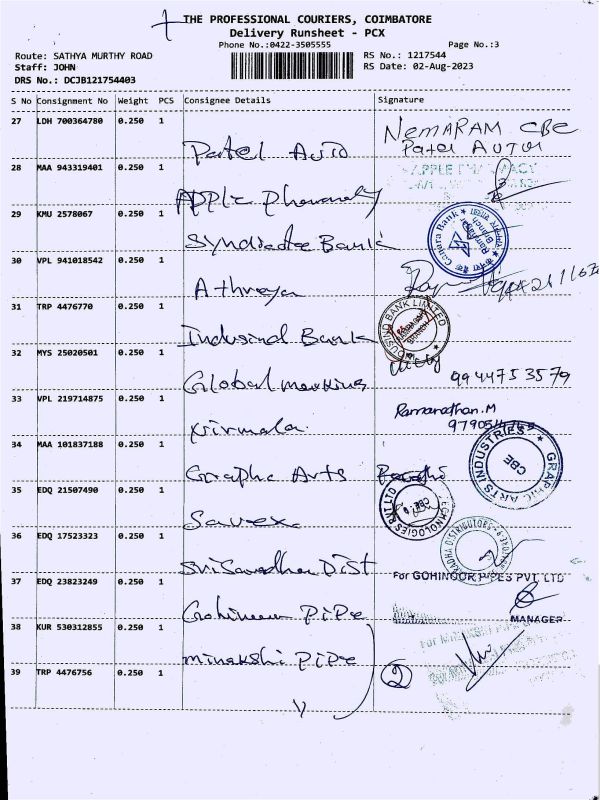 THE PROFESSIONAL COURIERS, COIMBATORE
Delivery Runsheet - PCX
Phone No.:0422-3505555
Page No.:3
Route: SATHYA MURTHY ROAD
RS No.: 1217544
Staff: JOHN
RS Date: 02-Aug-2023
DRS No.: DCJB121754403
S No Consignment No Weight PCS Consignee Details Signature
27 LDH 700364780 0.250 1
Patel Auto
NEMARAM CBE
Patel AUTOR
28 MAA 943319401 0.250 1
Apple Pharmacy
APPLE PHARMACY
29 KMU 2578067 0.250 1
Syndicate Bank
Canara Bank
30 VPL 941018542 0.250 1
Athreya
31 TRP 4476770 0.250 1
Indusind Bank
INDUSIND BANK LIMITED
32 MYS 25020501 0.250 1
Global
9944753579
33 VPL 219714875 0.250 1
Nirmala
Ramanathan.M
34 MAA 101837188 0.250 1
Graphc Arts
GRAPHIC ARTS INDUSTRIES
CBE
35 EDQ 21507490 0.250 1
Savex
TECHNOLOGIES PVT LTD
36 EDQ 17523323 0.250 1
Sri Saradha Dist
DISTRIBUTORS
37 EDQ 23823249 0.250 1
For GOHINOOR PIPES PVT LTD
Gohinoor Pipe
MANAGER
38 KUR 530312855 0.250 1
Minakshi Pipe
39 TRP 4476756 0.250 1
2
"